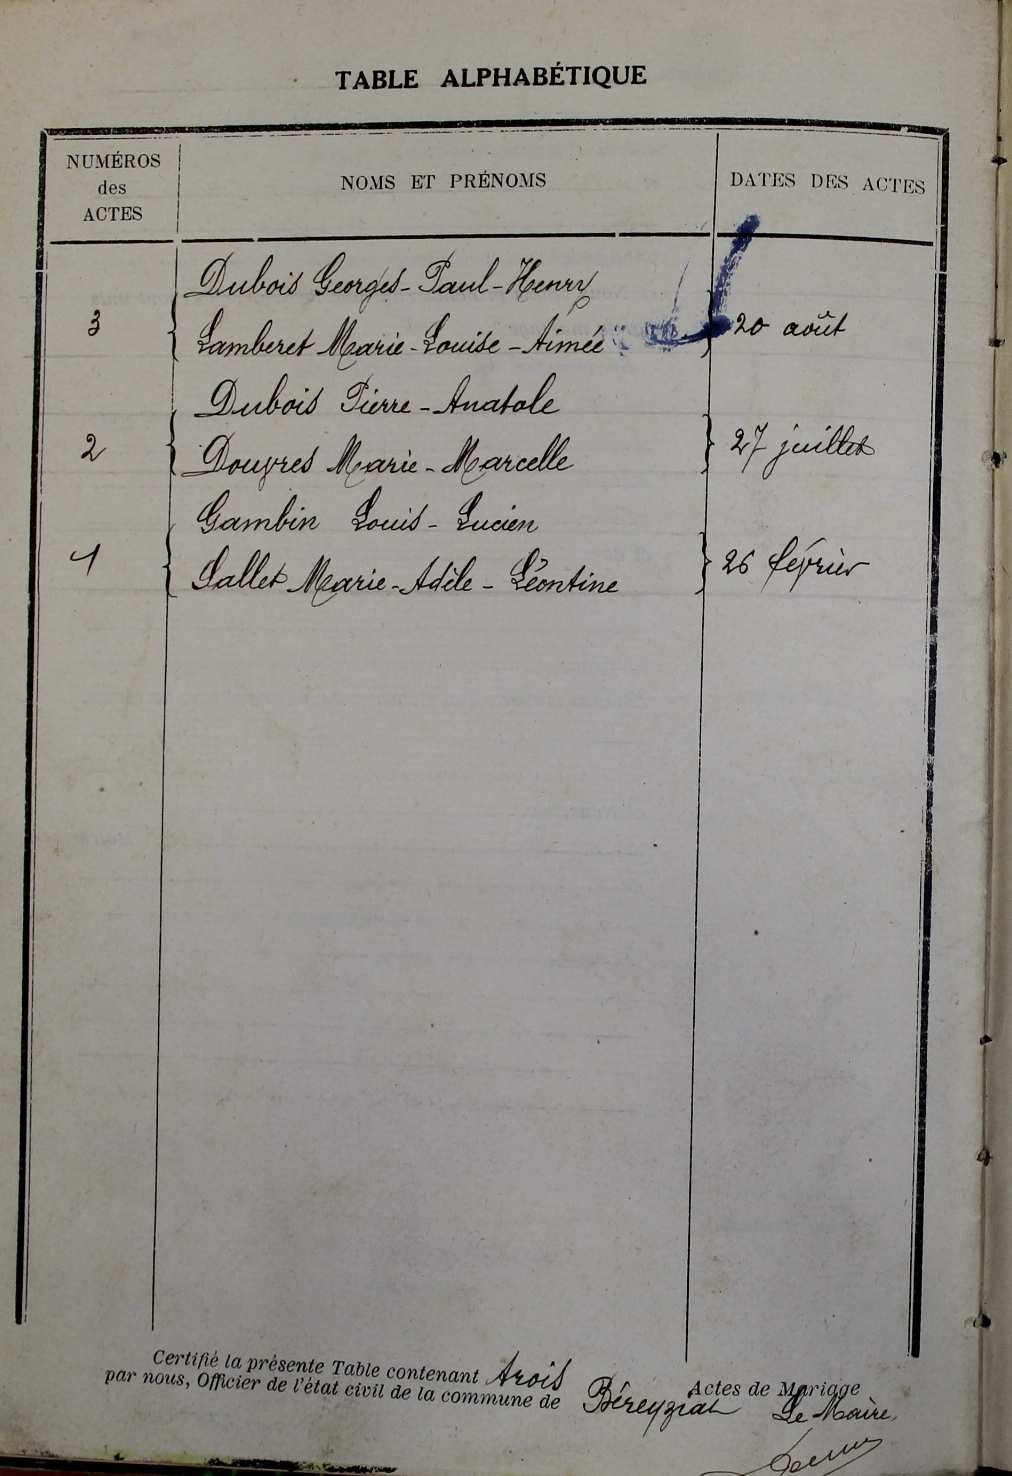 TABLE ALPHABÉTIQUE
NUMÉROS des ACTES
NOMS ET PRÉNOMS
DATES DES ACTES
Dubois Georges-Paul-Henry
3 Lamberet Marie-Louise-Aimée 20 août
Dubois Pierre-Anatole
2 Douyres Marie-Marcelle 27 juillet
Gambin Louis-Lucien
1 Sallet Marie-Adèle-Léontine 26 février
Certifié la présente Table contenant trois Actes de Mariage
par nous, Officier de l'état civil de la commune de Béreyziat Le Maire,